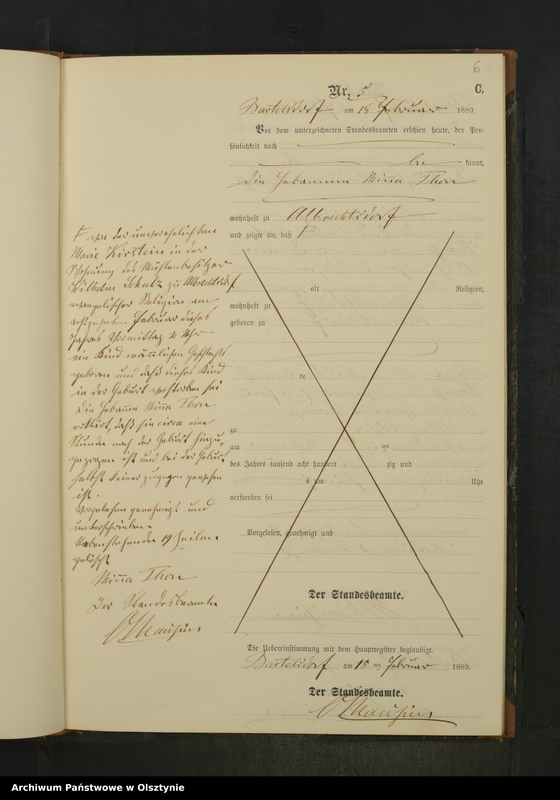 6
Nr. 5 C.
Bartelsdorf am 18 Februar 1889.
Vor dem unterzeichneten Standesbeamten erschien heute, der Per-
sönlichkeit nach
be kannt,
die Hebamme Minna Thon
wohnhaft zu Albrechtsdorf
und zeigte an, daß
alt Religion,
wohnhaft zu
geboren zu
de
zu
am ten
des Jahres tausend acht hundert zig und
s um Uhr
verstorben sei
Vorgelesen, genehmigt und
Der Standesbeamte.
von der unverehelichten
Marie Kirstein in der
Wohnung des Mühlenbesitzer
Wilhelm Schulz zu Albrechtsdorf
evangelischer Religion am
achtzehnten Februar dieses
Jahres Vormittag 2 Uhr
ein Kind männlichen Geschlechts
geboren und daß dieses Kind
in der Geburt verstorben sei
Die Hebamme Minna Thon
erklärt, daß sie circa eine
Stunde nach der Geburt hinzu-
gezogen ist und bei der Geburt
selbst keiner zugegen gewesen
ist.
Vorgelesen genehmigt und
unterschrieben
Nebenstehende 19 Zeilen
gelöscht
Minna Thon
Der Standesbeamte
Die Uebereinstimmung mit dem Hauptregister beglaubigt.
Bartelsdorf am 18 ten Februar 1889.
Der Standesbeamte.
Archiwum Państwowe w Olsztynie